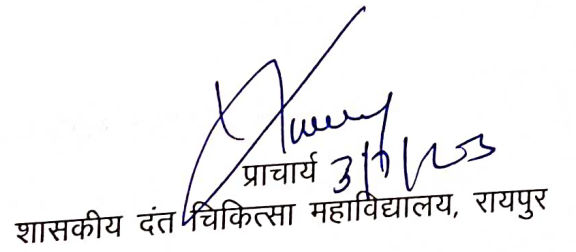 प्राचार्य
शासकीय दंत चिकित्सा महाविद्यालय, रायपुर